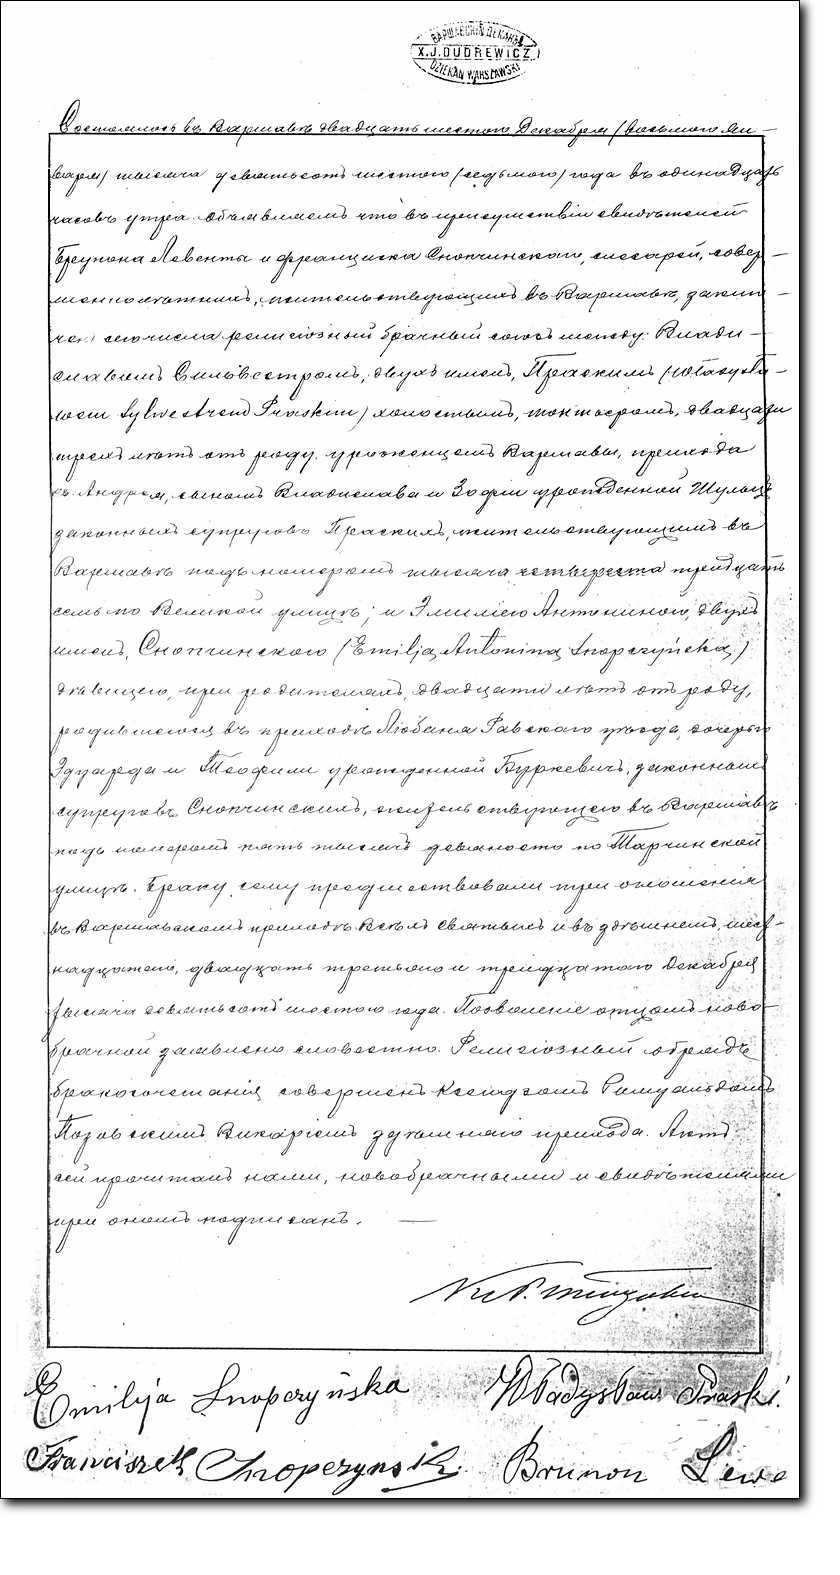 ВАРШАВСКІЙ ДЕКАНЪ
X.J.DUDREWICZ
DZIEKAN WARSZAWSKI
Состоялось въ Варшавѣ двадцать шестого Декабря (восьмого Ян-
варя) тысяча девятьсотъ шестого (седьмого) года въ одинадцать
часовъ утра. Объявляемъ что въ присутствіи свидѣтелей
Брунона Левенты и Франциска Снопчинскаго, слесарей, совер-
шеннолѣтнихъ, жительствующихъ въ Варшавѣ, заклю-
ченъ сего числа религіозный брачный союзъ между: Влади-
славомъ Сильвестромъ, двухъ именъ, Праскимъ (Władysła-
wem Sylwestrem Praskim) холостымъ, монтеромъ, двадцати
трехъ лѣтъ отъ роду, уроженцемъ Варшавы, прихода
св. Андрея, сыномъ Владислава и Зофіи урожденной Шульцъ
законныхъ супруговъ Праскихъ, жительствующимъ въ
Варшавѣ подъ номеромъ тысяча четыреста тридцать
семь по Великой улицѣ; и Эмиліею Антониною, двухъ
именъ, Снопчинскою (Emilją Antoniną Snopczyńską)
дѣвицею, при родителяхъ, двадцати лѣтъ отъ роду,
родившеюся въ приходѣ Любаня Равскаго уѣзда, дочерью
Эдуарда и Теофили урожденной Буркевичъ, законныхъ
супруговъ Снопчинскихъ, жительствующею въ Варшавѣ
подъ номеромъ пять тысячъ девяносто по Тарчинской
улицѣ. Браку сему предшествовали три оглашенія
въ Варшавскомъ приходѣ Всѣхъ Святыхъ и въ здѣшнемъ, шест-
надцатаго, двадцать третьяго и тридцатаго Декабря
тысяча девятьсотъ шестого года. Позволеніе отцомъ ново-
брачной заявлено словестно. Религіозный обрядъ
бракосочетанія совершенъ Ксендзомъ Ромуальдомъ
Позовскимъ Викаріемъ здѣшняго прихода. Актъ
сей прочитанъ нами, новобрачными и свидѣтелями
при ономъ подписанъ.
Emilija Snopczyńska Władysław Praski.
Franciszek Snopczynski Brunon Lewe